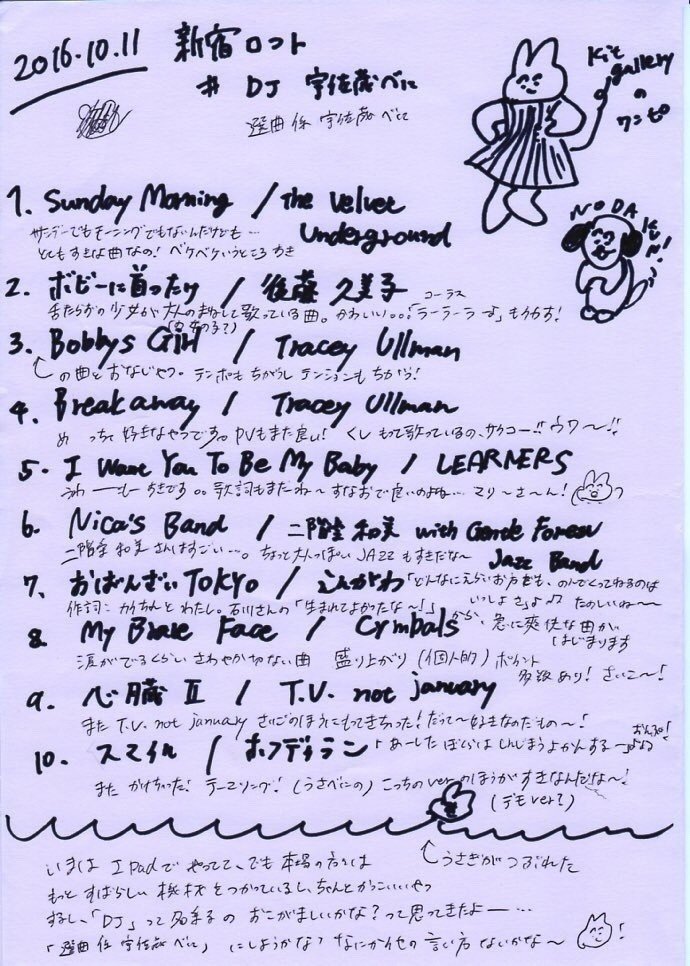 2016.10.11 新宿ロフト
# DJ 宇佐蔵べに
選曲係 宇佐蔵べに
Kit gallery の ワンピ
NODA
1. Sunday Morning / the Velvet Underground
サンデーでもモーニングでもないんだけども…
とてもすきな曲なの! ベケベケいうところ
2. ボビーに首ったけ / 後藤久美子
舌たらずの少女が大人のまねして歌っている曲。かわいい。。。! コーラス「ラーラーラー♪」もうかす!
(女の子?)
3. Bobbys Girl / Tracey Ullman
の曲とおなじやつ。テンポもちがうしテンションもちがう!
4. Breakaway / Tracey Ullman
めっちゃ好きなやつです。PVもまた良い! くしもって歌っているの、サイコー!! ウワ〜!!
5. I Want You To Be My Baby / LEARNERS
うわーーもーすきです。。歌詞もまたね〜すなおで良いのよね… マリーさーん!
6. Nica's Band / 二階堂 和美 with Gentle Forest Jazz Band
二階堂和美さんはすごい…。ちょっと大人っぽい JAZZ もすきだな〜
7. おばんざいTOKYO / えんがわ 「どんなにえらいお方も、のんでくってねるのはいっしょさ」♪♪ たのしいね〜
作詞: カイちゃんとわたし。石川さんの「生まれてよかったな〜!」から、急に爽快な曲がはじまります
8. My Brave Face / Cymbals
涙がでるくらい さわやか切ない曲 盛り上がり (個人的) ポイント 多数あり! さいこ〜!
9. 心臓 II / T.V. not january
また T.V. not january さいごのほうにもってきちゃった! だって〜好きなのだもの〜!
10. スマイル / ホフディラン 「あーした ぼくらは しんじまうよかんする〜」
またかけちゃった! テーマソング! (うさべにの) こっちのverのほうがすきなんだな〜!
(デモver?)
うさぎがつぶれた
いまは I Padで やってて、でも 本場の方々は
もっと すばらしい 機材をつかっているし、ちゃんとかっこいいやつ
するし、「DJ」って名乗るの おこがましいかな? って思ってきたよー…。
「選曲係 宇佐蔵べに」 にしようかな? なにか他の言い方ないかな〜!